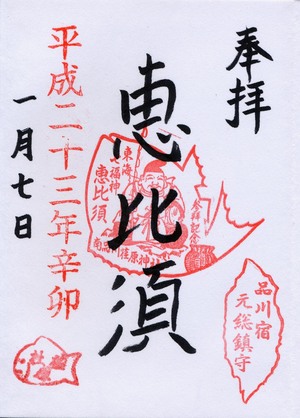 奉拝
恵比須
平成二十三年辛卯
一月七日
東海
七福神
恵比須
参拝記念
南品川荏原神社
品川宿
元総鎮守